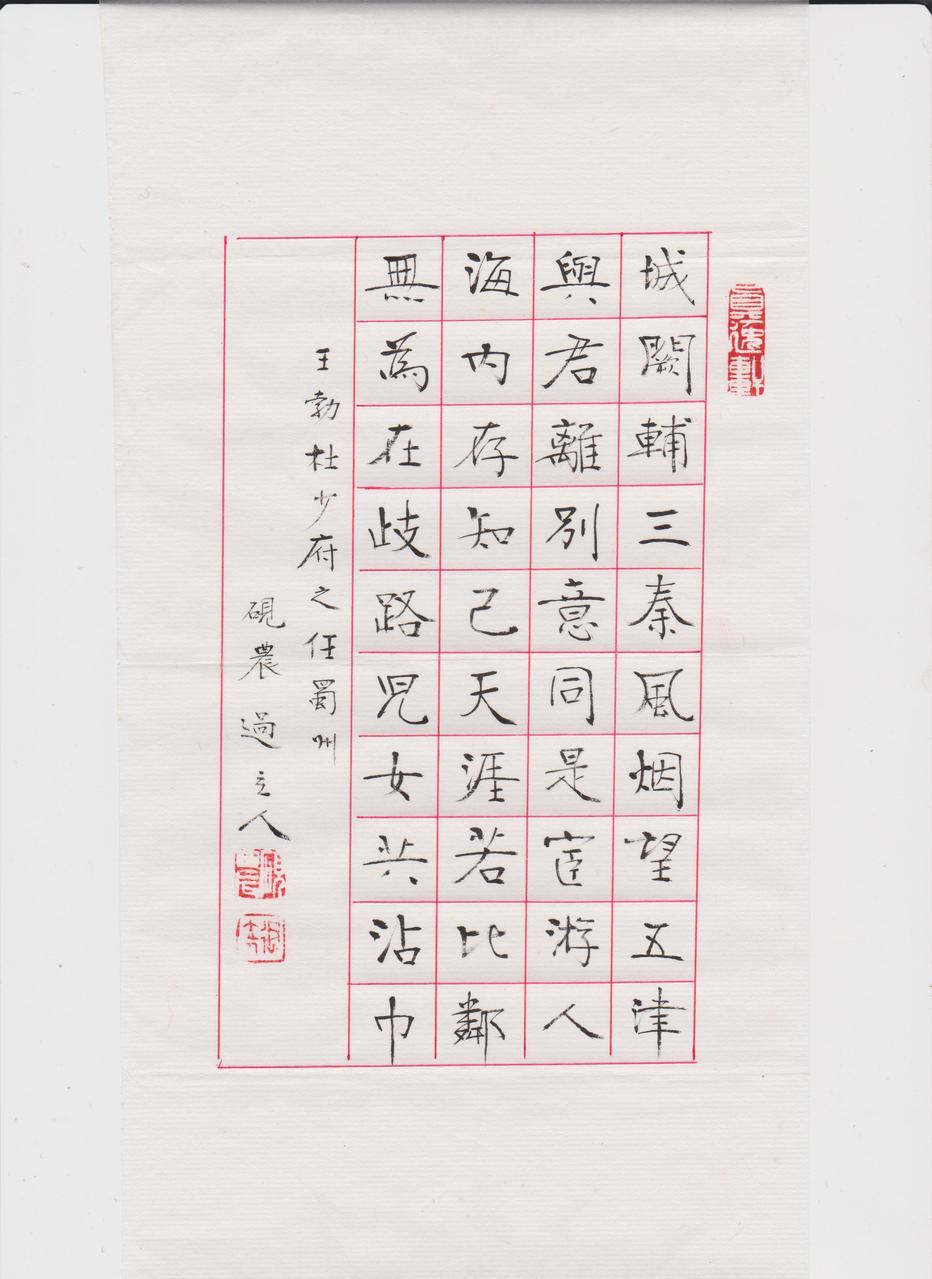 城闕輔三秦風烟望五津
與君離別意同是宦游人
海内存知己天涯若比鄰
無為在歧路兒女共沾巾
王勃杜少府之任蜀州
硯農過立人